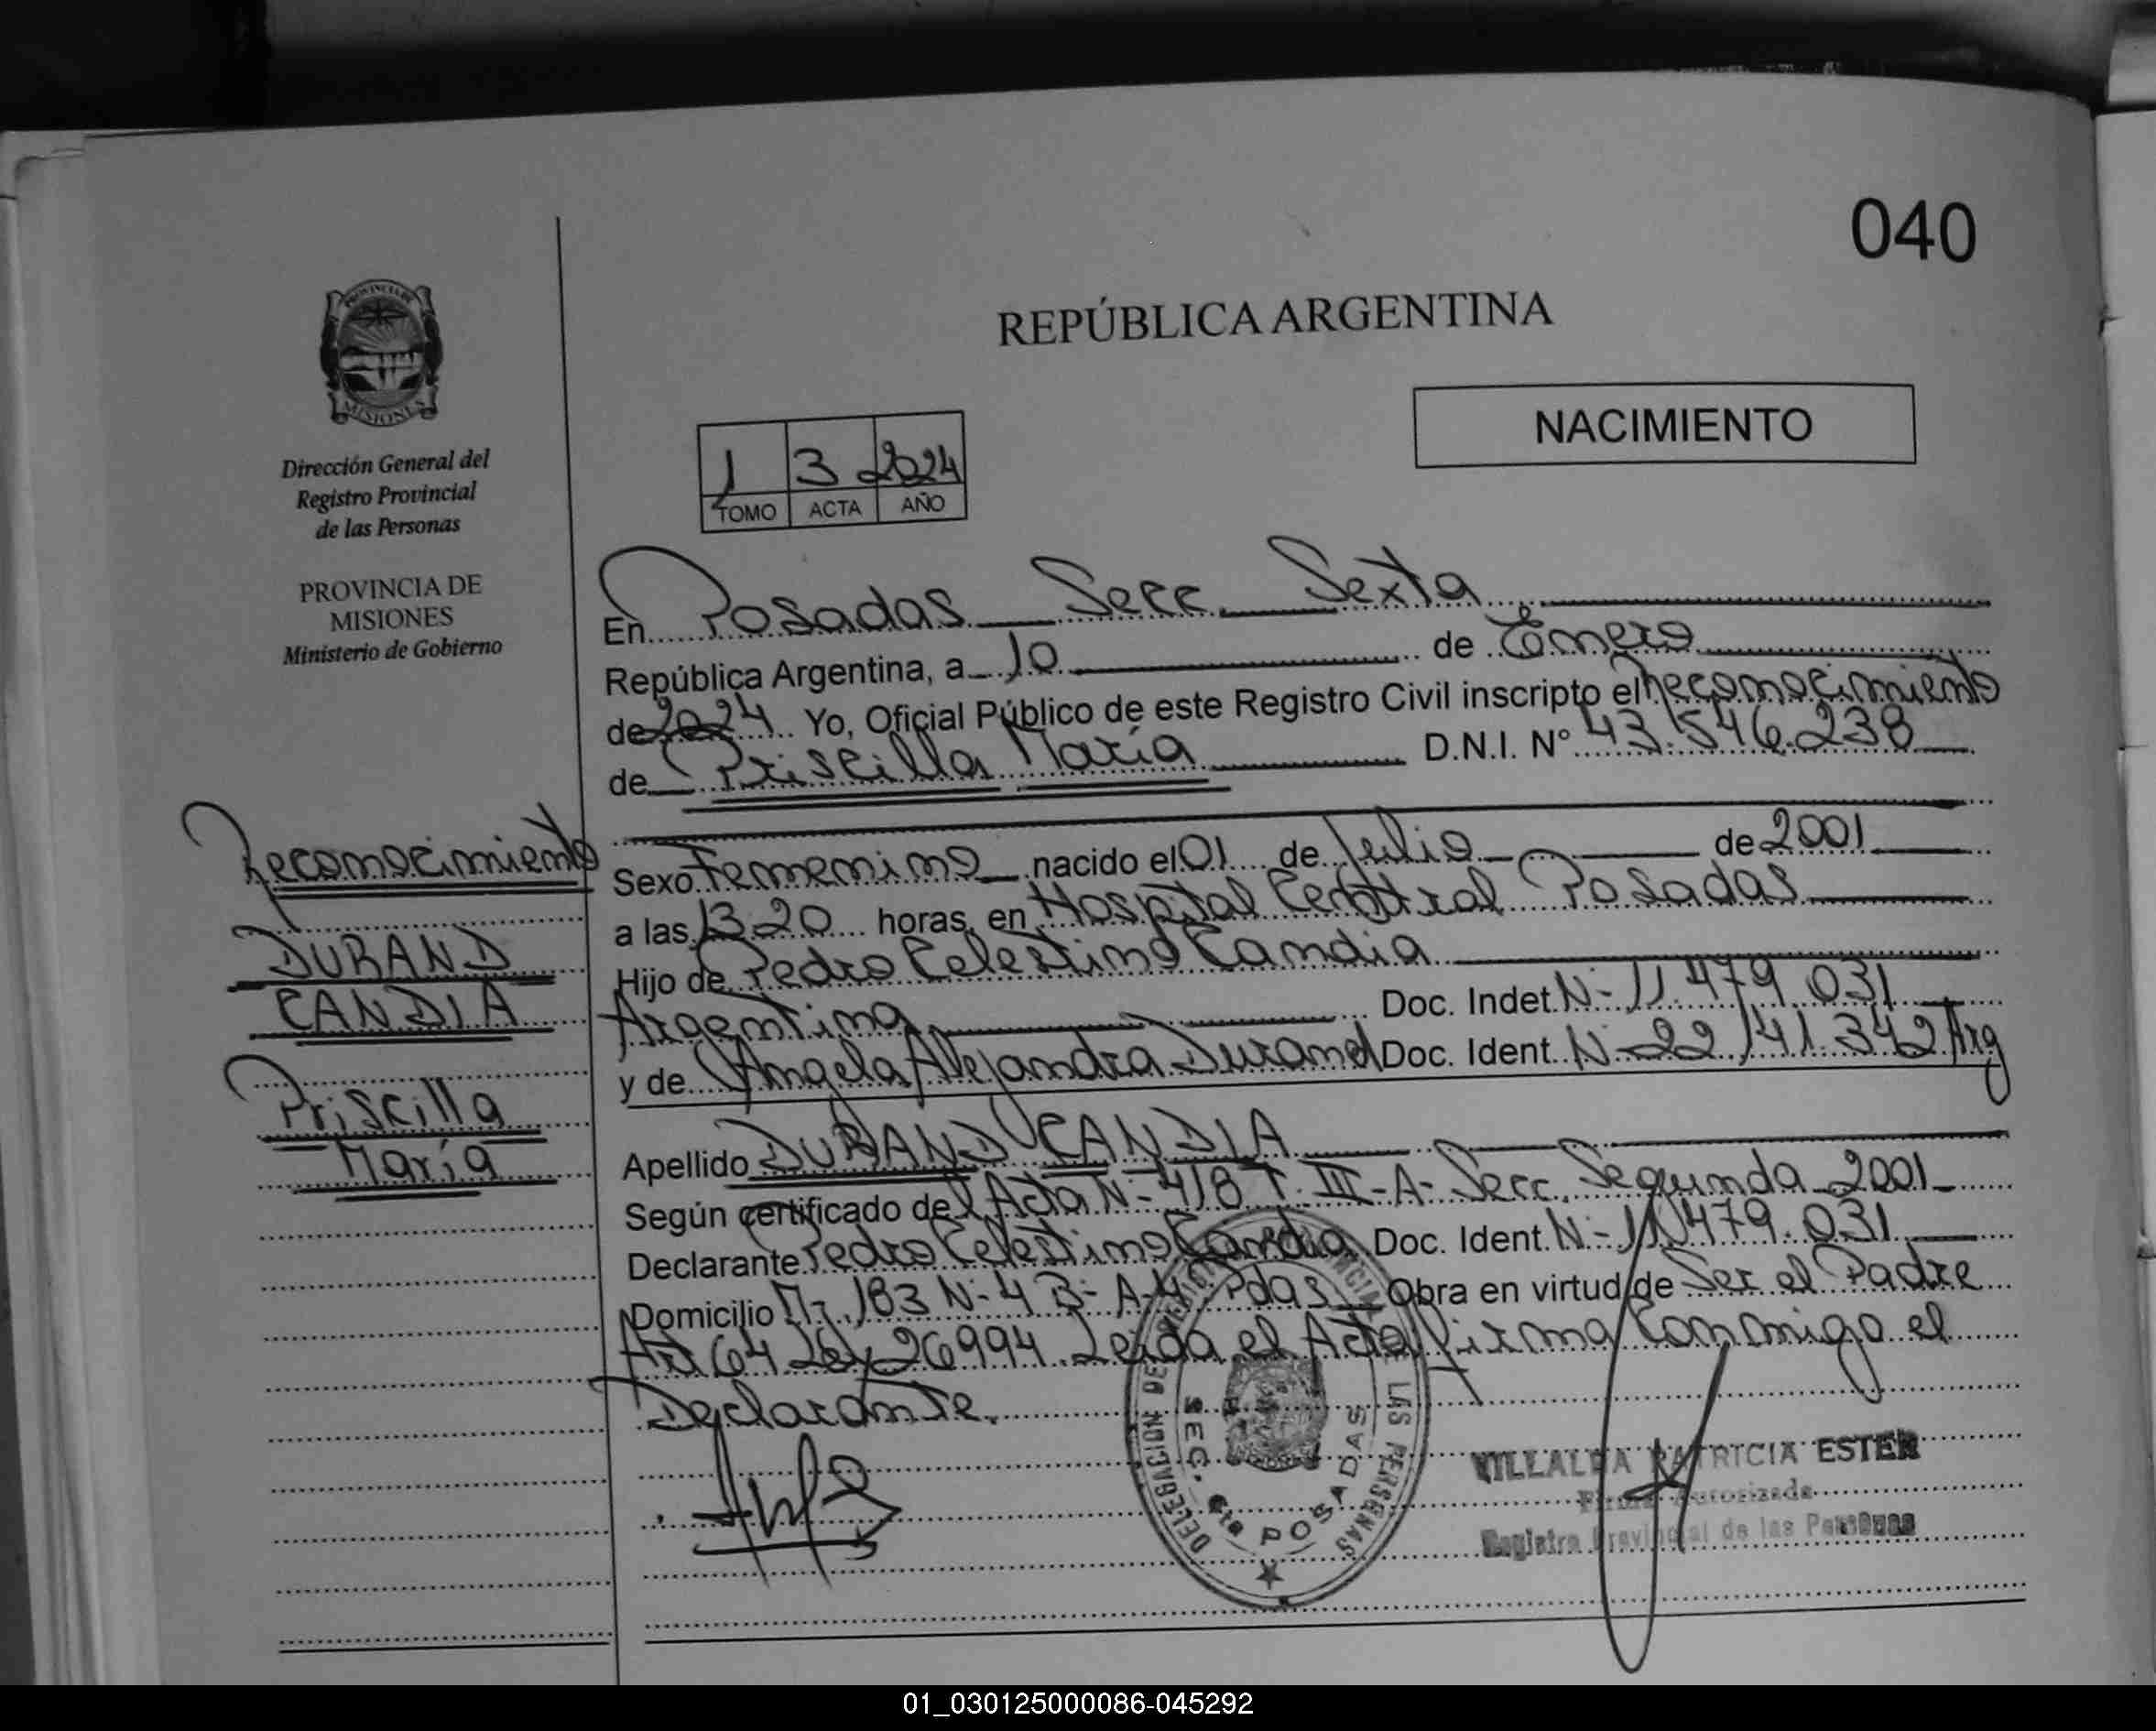 040
PROVINCIA DE
MISIONES
Dirección General del
Registro Provincial
de las Personas
PROVINCIA DE
MISIONES
Ministerio de Gobierno
Reconocimiento
DURAND
CANDIA
Priscilla
María
REPÚBLICA ARGENTINA
NACIMIENTO
1 3 2024
TOMO ACTA AÑO
En Posadas Secc. Sexta
República Argentina, a 10 de Enero
de 2024 Yo, Oficial Público de este Registro Civil inscripto el reconocimiento
de Priscilla María D.N.I. N° 43.546.238
Sexo Femenino nacido el 01 de Julio de 2001
a las 13 20 horas, en Hospital Central Posadas
Hijo de Pedro Celestino Candia
Argentina Doc. Indet. N- 11.479.031
y de Angela Alejandra Durand Doc. Ident. N- 22 141.342 Arg
Apellido DURAND CANDIA
Según certificado de l Acta N- 418 T. III-A- Secc. Segunda 2001
Declarante Pedro Celestino Candia Doc. Ident. N- 11.479.031
Domicilio Mz 183 N- 4 B- A-4 Pdas Obra en virtud de Ser el Padre
Art 64 Ley 26994. Leída el Acta firma conmigo el
Declarante.
DELEGACION DE LAS PERSONAS
SEC. 6ta POSADAS
VILLALBA PATRICIA ESTER
Firma Autorizada
Registro Provincial de las Personas
01_030125000086-045292